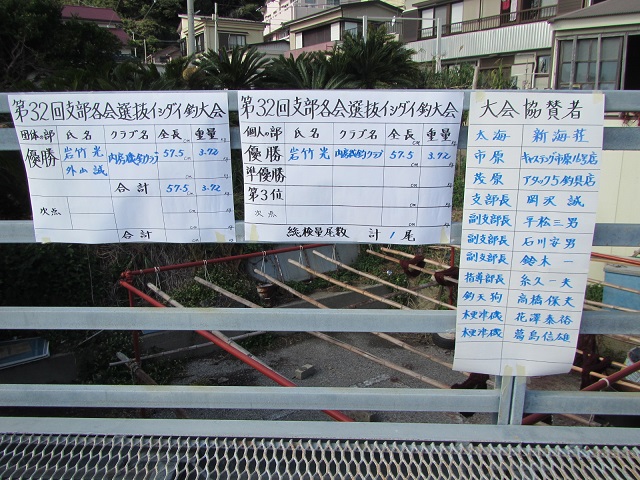 第32回支部各会選抜イシダイ釣大会
団体の部 氏名 クラブ名 全長 重量
優勝 岩竹光 内房磯釣クラブ 57.5 cm 3.72
外山誠
合計 57.5 cm 3.72
次点
合計 cm
第32回支部各会選抜イシダイ釣大会
個人の部 氏名 クラブ名 全長 重量
優勝 岩竹光 内房磯釣クラブ 57.5 cm 3.72
準優勝 cm
第3位 cm
次点 cm
総検量尾数 計 1尾
大会協賛者
太海 新海荘
市原 キャスティング市原16号店
茂原 アタック5釣具店
支部長 岡沢誠
副支部長 平松三男
副支部長 石川安男
副支部長 鈴木一
指導部長 糸久一夫
釣天狗 高橋保夫
木更津磯 花澤泰裕
木更津磯 葛島信雄